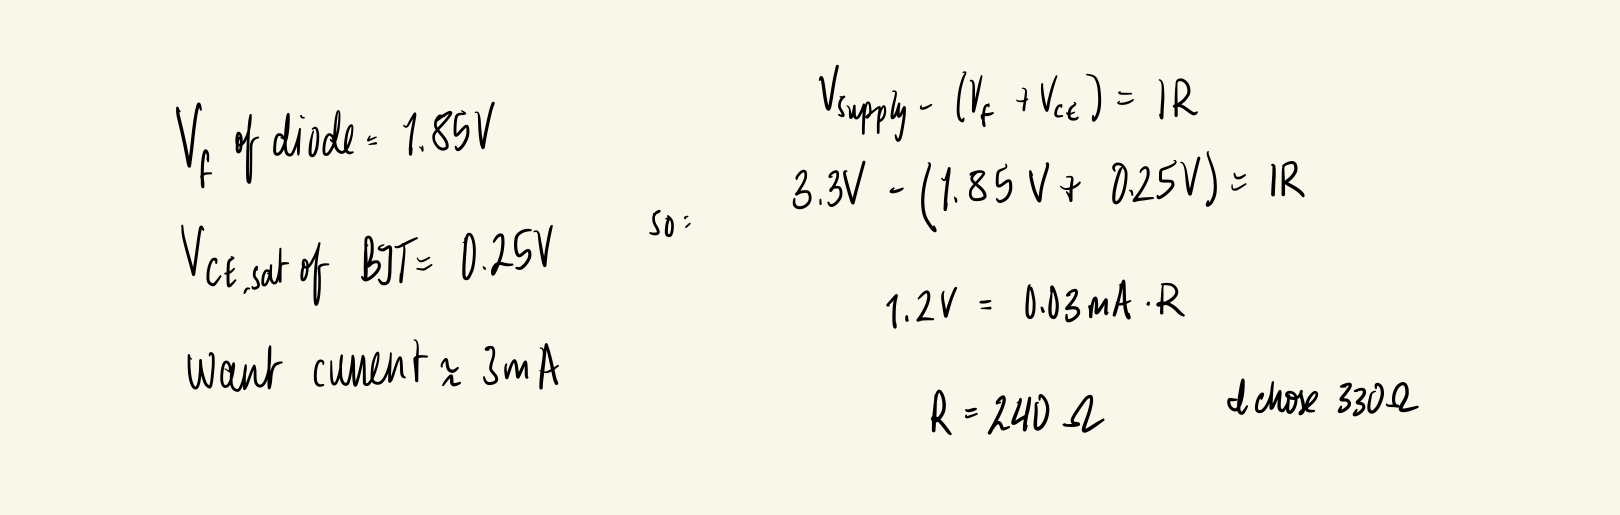 V_f of diode = 1.85V
V_CE,sat of BJT = 0.25V
want current ≈ 3mA
so:
V_supply - (V_f + V_CE) = IR
3.3V - (1.85V + 0.25V) = IR
1.2V = 0.03mA · R
R = 240 Ω
I chose 330Ω